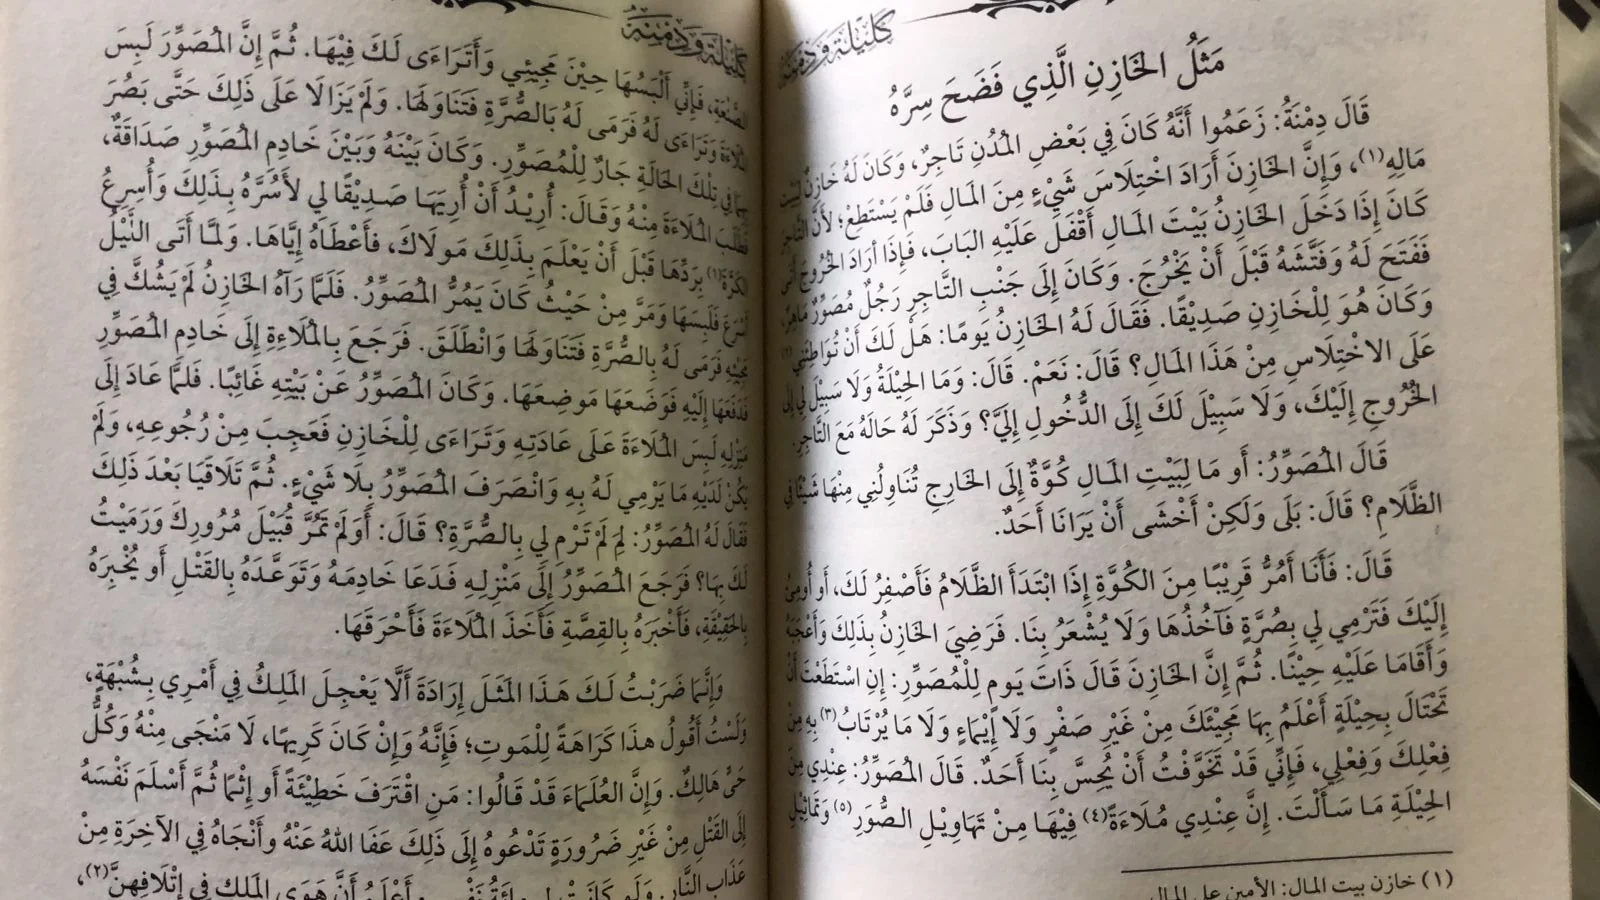 كَلِيْلَة وَدِمْنَة
مَثَلُ الخَازِنِ الَّذِي فَضَحَ سِرَّهُ
قَالَ دِمْنَةُ: زَعَمُوا أَنَّهُ كَانَ فِي بَعْضِ المُدُنِ تَاجِرٌ، وَكَانَ لَهُ خَازِنٌ لِبَيْتِ
مَالِهِ(١)، وَإِنَّ الخَازِنَ أَرَادَ اخْتِلَاسَ شَيْءٍ مِنَ المَالِ فَلَمْ يَسْتَطِعْ؛ لأَنَّ التَّاجِرَ
كَانَ إِذَا دَخَلَ الخَازِنُ بَيْتَ المَالِ أَقْفَلَ عَلَيْهِ البَابَ، فَإِذَا أَرَادَ الخُرُوجَ
فَفَتَحَ لَهُ وَفَتَّشَهُ قَبْلَ أَنْ يَخْرُجَ. وَكَانَ إِلَى جَنْبِ التَّاجِرِ رَجُلٌ مُصَوِّرٌ مَاهِرٌ،
وَكَانَ هُوَ لِلْخَازِنِ صَدِيْقًا. فَقَالَ لَهُ الخَازِنُ يَومًا: هَلْ لَكَ أَنْ تُوَاطِئَنِي(٢)
عَلَى الاخْتِلَاسِ مِنْ هَذَا المَالِ؟ قَالَ: نَعَمْ. قَالَ: وَمَا الحِيْلَةُ وَلَا سَبِيْلَ لِي إِلَى
الخُرُوجِ إِلَيْكَ، وَلَا سَبِيْلَ لَكَ إِلَى الدُّخُولِ إِلَيَّ؟ وَذَكَرَ لَهُ حَالَهُ مَعَ التَّاجِرِ.
قَالَ المُصَوِّرُ: أَو مَا لِبَيْتِ المَالِ كُوَّةٌ إِلَى الخَارِجِ تُنَاوِلُنِي مِنْهَا شَيْئًا فِي
الظَّلَامِ؟ قَالَ: بَلَى وَلَكِنْ أَخْشَى أَنْ يَرَانَا أَحَدٌ.
قَالَ: فَأَنَا أَمُرُّ قَرِيْبًا مِنَ الكُوَّةِ إِذَا ابْتَدَأَ الظَّلَامُ فَأَصْفِرُ لَكَ، أَو أُومِئُ
إِلَيْكَ فَتَرْمِي لِي بِصُرَّةٍ فَآخُذُهَا وَلَا يُشْعَرُ بِنَا. فَرَضِيَ الخَازِنُ بِذَلِكَ وَأَعْجَبَهُ
وَأَقَامَا عَلَيْهِ حِيْنًا. ثُمَّ إِنَّ الخَازِنَ قَالَ ذَاتَ يَومٍ لِلْمُصَوِّرِ: إِنِ اسْتَطَعْتَ أَنْ
تَحْتَالَ بِحِيْلَةٍ أَعْلَمُ بِهَا مَجِيْئَكَ مِنْ غَيْرِ صَفْرٍ وَلَا إِيْمَاءٍ وَلَا مَا يُرْتَابُ(٣) بِهِ مِنْ
فِعْلِكَ وَفِعْلِي، فَإِنِّي قَدْ تَخَوَّفْتُ أَنْ يُحِسَّ بِنَا أَحَدٌ. قَالَ المُصَوِّرُ: عِنْدِي مِنَ
الحِيْلَةِ مَا سَأَلْتَ. إِنَّ عِنْدِي مُلَاءَةً(٤) فِيْهَا مِنْ تَهَاوِيْلِ الصُّوَرِ(٥) وَتَمَاثِيْلِ
(١) خازن بيت المال: الأمين على المال
كَلِيْلَة وَدِمْنَة
الصَّنْعَةِ، فَإِنِّي أَلْبَسُهَا حِيْنَ مَجِيْئِي وَأَتَرَاءَى لَكَ فِيْهَا. ثُمَّ إِنَّ المُصَوِّرَ لَبِسَ
المُلَاءَةَ وَتَرَاءَى لَهُ فَرَمَى لَهُ بَالصُّرَّةِ فَتَنَاوَلَهَا. وَلَمْ يَزَالَا عَلَى ذَلِكَ حَتَّى بَصُرَ
بِهِمَا فِي تِلْكَ الحَالَةِ جَارٌ لِلْمُصَوِّرِ. وَكَانَ بَيْنَهُ وَبَيْنَ خَادِمِ المُصَوِّرِ صَدَاقَةٌ،
فَطَلَبَ المُلَاءَةَ مِنْهُ وَقَالَ: أُرِيْدُ أَنْ أُرِيَهَا صَدِيْقًا لِي لأَسُرَّهُ بِذَلِكَ وَأُسِرِعُ
الكَرَّةَ(١) بِرَدِّهَا قَبْلَ أَنْ يَعْلَمَ بِذَلِكَ مَولَاكَ، فَأَعْطَاهُ إِيَّاهَا. وَلَمَّا أَتَى اللَّيْلُ
أَسْرَعَ فَلَبِسَهَا وَمَرَّ مِنْ حَيْثُ كَانَ يَمُرُّ المُصَوِّرُ. فَلَمَّا رَآهُ الخَازِنُ لَمْ يَشُكَّ فِي
مَجِيْئِهِ فَرَمَى لَهُ بِالصُّرَّةِ فَتَنَاوَلَهَا وَانْطَلَقَ. فَرَجَعَ بِالمُلَاءَةِ إِلَى خَادِمِ المُصَوِّرِ
فَدَفَعَهَا إِلَيْهِ فَوَضَعَهَا مَوضِعَهَا. وَكَانَ المُصَوِّرُ عَنْ بَيْتِهِ غَائِبًا. فَلَمَّا عَادَ إِلَى
مَنْزِلِهِ لَبِسَ المُلَاءَةَ عَلَى عَادَتِهِ وَتَرَاءَى لِلْخَازِنِ فَعَجِبَ مِنْ رُجُوعِهِ، وَلَمْ
يَكُنْ لَدَيْهِ مَا يَرْمِي لَهُ بِهِ وَانْصَرَفَ المُصَوِّرُ بِلَا شَيْءٍ. ثُمَّ تَلَاقَيَا بَعْدَ ذَلِكَ
فَقَالَ لَهُ المُصَوِّرُ: لِمَ لَمْ تَرْمِ لِي بِالصُّرَّةِ؟ قَالَ: أَوَلَمْ تَمُرَّ قُبَيْلَ مُرُورِكَ وَرَمَيْتُ
لَكَ بِهَا؟ فَرَجَعَ المُصَوِّرُ إِلَى مَنْزِلِهِ فَدَعَا خَادِمَهُ وَتَوَعَّدَهُ بِالقَتْلِ أَو يُخْبِرَهُ
بِالحَقِيْقَةِ، فَأَخْبَرَهُ بِالقِصَّةِ فَأَخَذَ المُلَاءَةَ فَأَحْرَقَهَا.
وَإِنَّمَا ضَرَبْتُ لَكَ هَذَا المَثَلَ إِرَادَةَ أَلَّا يَعْجِلَ المَلِكُ فِي أَمْرِي بِشُبْهَةٍ،
وَلَسْتُ أَقُولُ هذَا كَرَاهَةً لِلْمَوتِ؛ فَإِنَّهُ وَإِنْ كَانَ كَرِيهًا، لَا مَنْجَى مِنْهُ وَكُلُّ
حَيٍّ هَالِكٌ. وَإِنَّ العُلَمَاءَ قَدْ قَالُوا: مَنِ اقْتَرَفَ خَطِيْئَةً أَو إِثْمًا ثُمَّ أَسْلَمَ نَفْسَهُ
إِلَى القَتْلِ مِنْ غَيْرِ ضَرُورَةٍ تَدْعُوهُ إِلَى ذَلِكَ عَفَا اللهُ عَنْهُ وأَنْجَاهُ فِي الآخِرَةِ مِنْ
عَذَابِ النَّارِ. وَلَو كَانَتْ لِي مِائَةُ نَفْسٍ وأَعْلَمُ أَنَّ هَوَى المَلِكِ فِي إِتْلَافِهِنَّ(٢)،